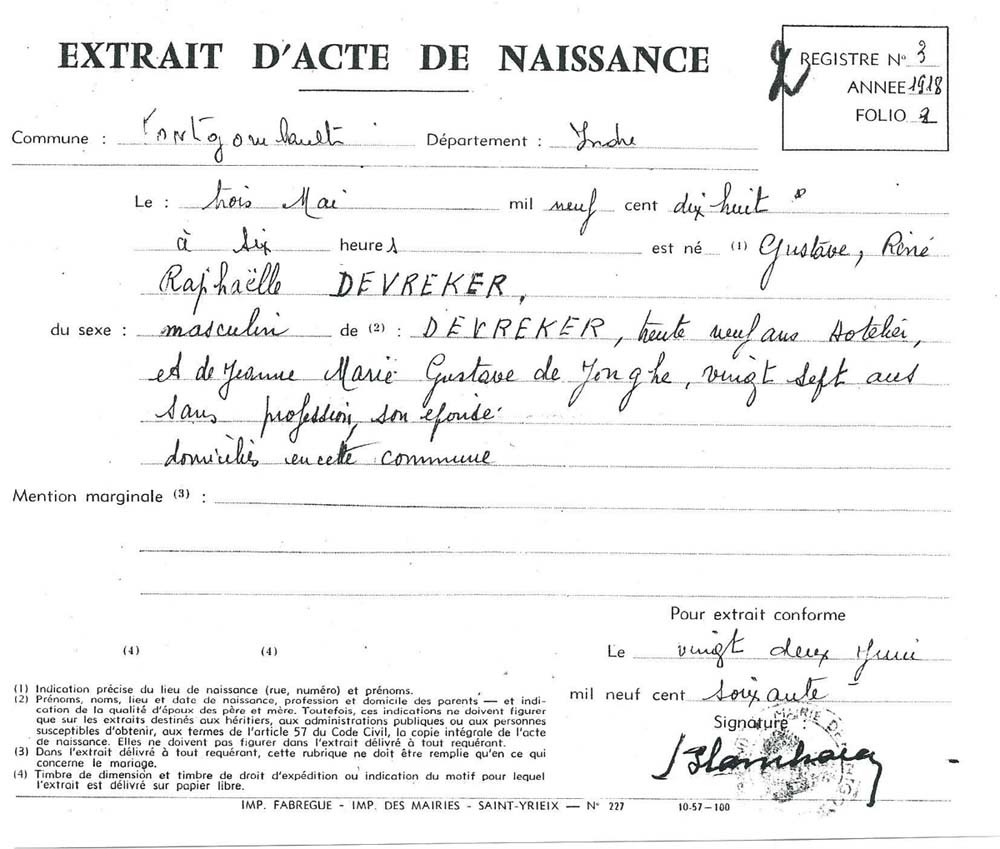 EXTRAIT D'ACTE DE NAISSANCE
2
REGISTRE N° 3
ANNEE 1918
FOLIO 2
Commune : Fontgombault Département : Indre
Le : trois Mai mil neuf cent dix huit
à six heures est né (1) Gustave, Réné
Raphaëlle DEVREKER,
du sexe : masculin de (2) : DEVREKER, trente neuf ans Hotelier,
et de Jeanne Marie Gustave de Jonghe, vingt sept ans
sans profession, son épouse
domiciliés en cette commune
Mention marginale (3) :
Pour extrait conforme
(4) (4)
Le vingt deux Juin
mil neuf cent soixante
Signature :
(1) Indication précise du lieu de naissance (rue, numéro) et prénoms.
(2) Prénoms, noms, lieu et date de naissance, profession et domicile des parents — et indi-
cation de la qualité d'époux des père et mère. Toutefois, ces indications ne doivent figurer
que sur les extraits destinés aux héritiers, aux administrations publiques ou aux personnes
susceptibles d'obtenir, aux termes de l'article 57 du Code Civil, la copie intégrale de l'acte
de naissance. Elles ne doivent pas figurer dans l'extrait délivré à tout requérant.
(3) Dans l'extrait délivré à tout requérant, cette rubrique ne doit être remplie qu'en ce qui
concerne le mariage.
(4) Timbre de dimension et timbre de droit d'expédition ou indication du motif pour lequel
l'extrait est délivré sur papier libre.
IMP. FABREGUE - IMP. DES MAIRIES - SAINT-YRIEIX — N° 227 10-57-100